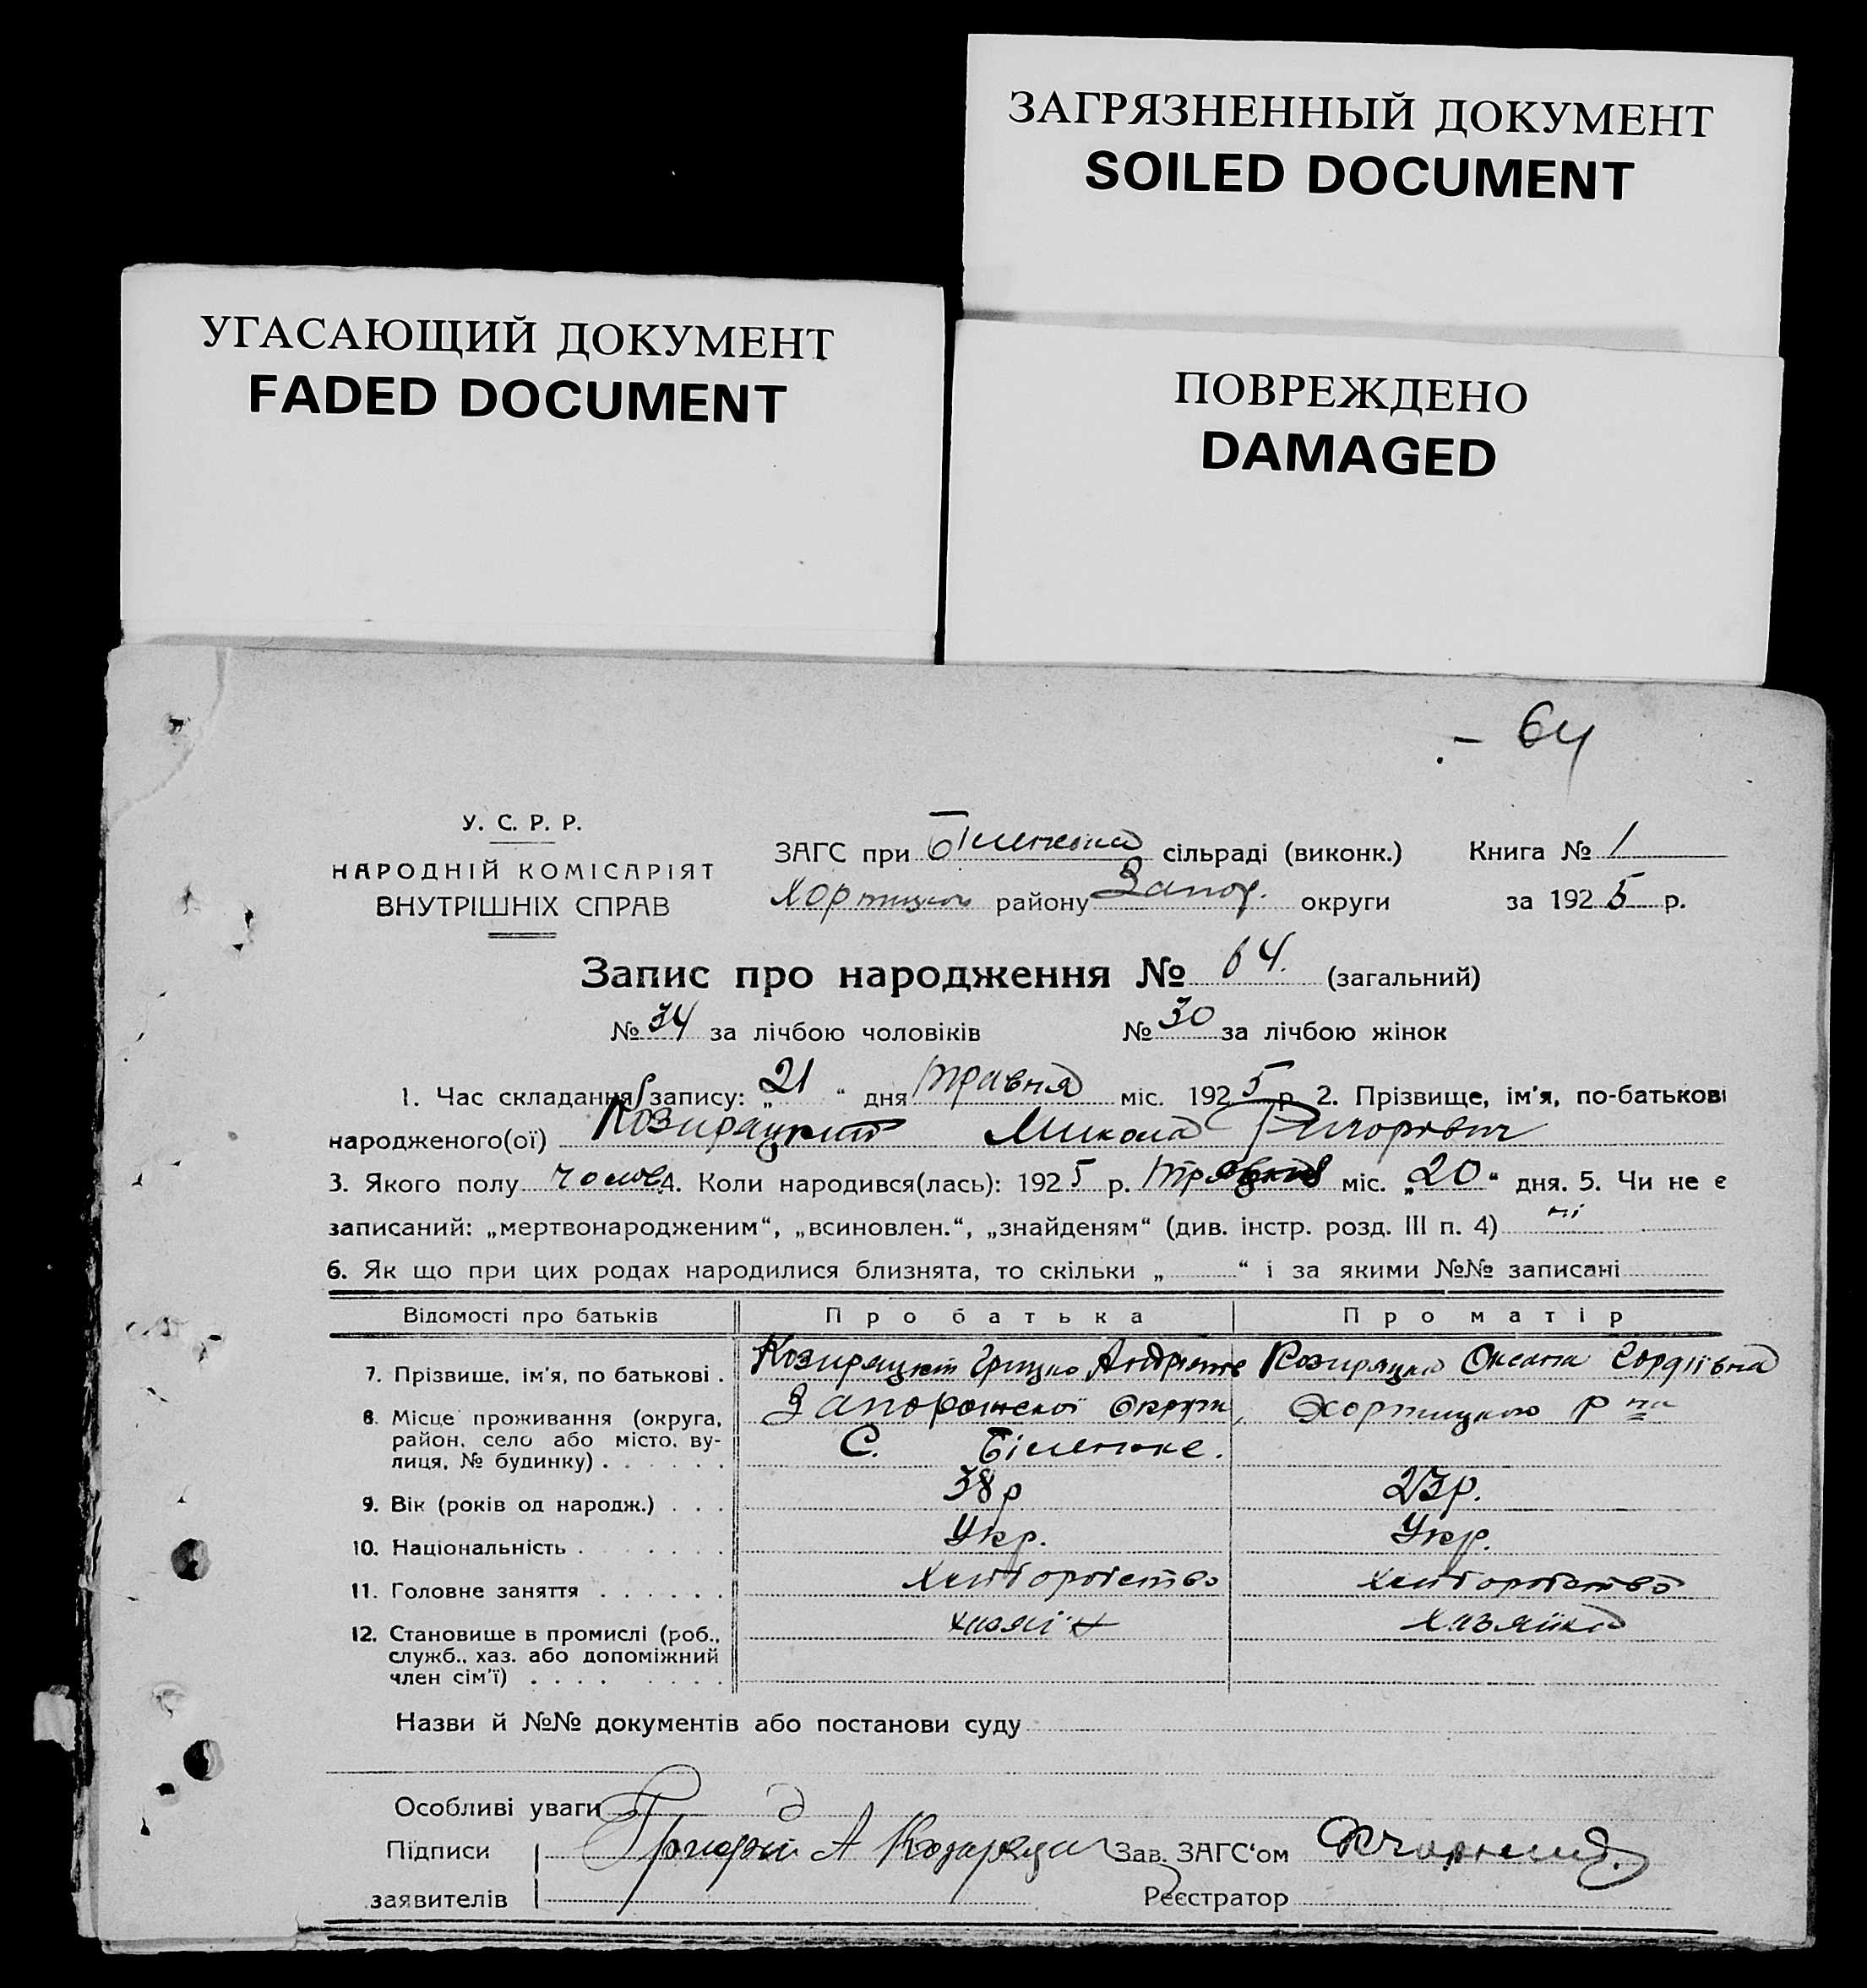 ЗАГРЯЗНЕННЫЙ ДОКУМЕНТ
SOILED DOCUMENT
УГАСАЮЩИЙ ДОКУМЕНТ
FADED DOCUMENT
ПОВРЕЖДЕНО
DAMAGED
64
У. С. Р. Р.
НАРОДНІЙ КОМІСАРІЯТ
ВНУТРІШНІХ СПРАВ
ЗАГС при сільраді (виконк.) Книга № 1
району Запор. округи за 1925 р.
Запис про народження № 64. (загальний)
№ 34 за лічбою чоловіків № 30 за лічбою жінок
1. Час складання запису: „21“ дня травня міс. 1925 р. 2. Прізвище, ім'я, по-батькові
народженого(ої) Микола Григорович
3. Якого полу 4. Коли народився(лась): 1925 р. травня міс. „20“ дня. 5. Чи не є
записаний: „мертвонародженим“, „всиновлен.“, „знайденям“ (див. інстр. розд. III п. 4) ні
6. Як що при цих родах народилися близнята, то скільки „ “ і за якими №№ записані
Відомості про батьків Про батька Про матір
7. Прізвище, ім'я, по батькові . Грицко Козирацка Оксана Гордіївна
8. Місце проживання (округа, Запорожської округи, Хортицького р на
район, село або місто, ву- С. Біленьке.
лиця, № будинку) . . . . . .
9. Вік (років од народж.) . . . 38 р 23 р.
10. Національність . . . . . . Укр. Укр.
11. Головне заняття . . . . . . хліборобство хліборобство
12. Становище в промислі (роб., хазяїн хазяйка
служб., хаз. або допоміжний
член сім'ї) . . . . . . . .
Назви й №№ документів або постанови суду
Особливі уваги
Підписи Григорій А Зав. ЗАГС'ом
заявителів Реєстратор